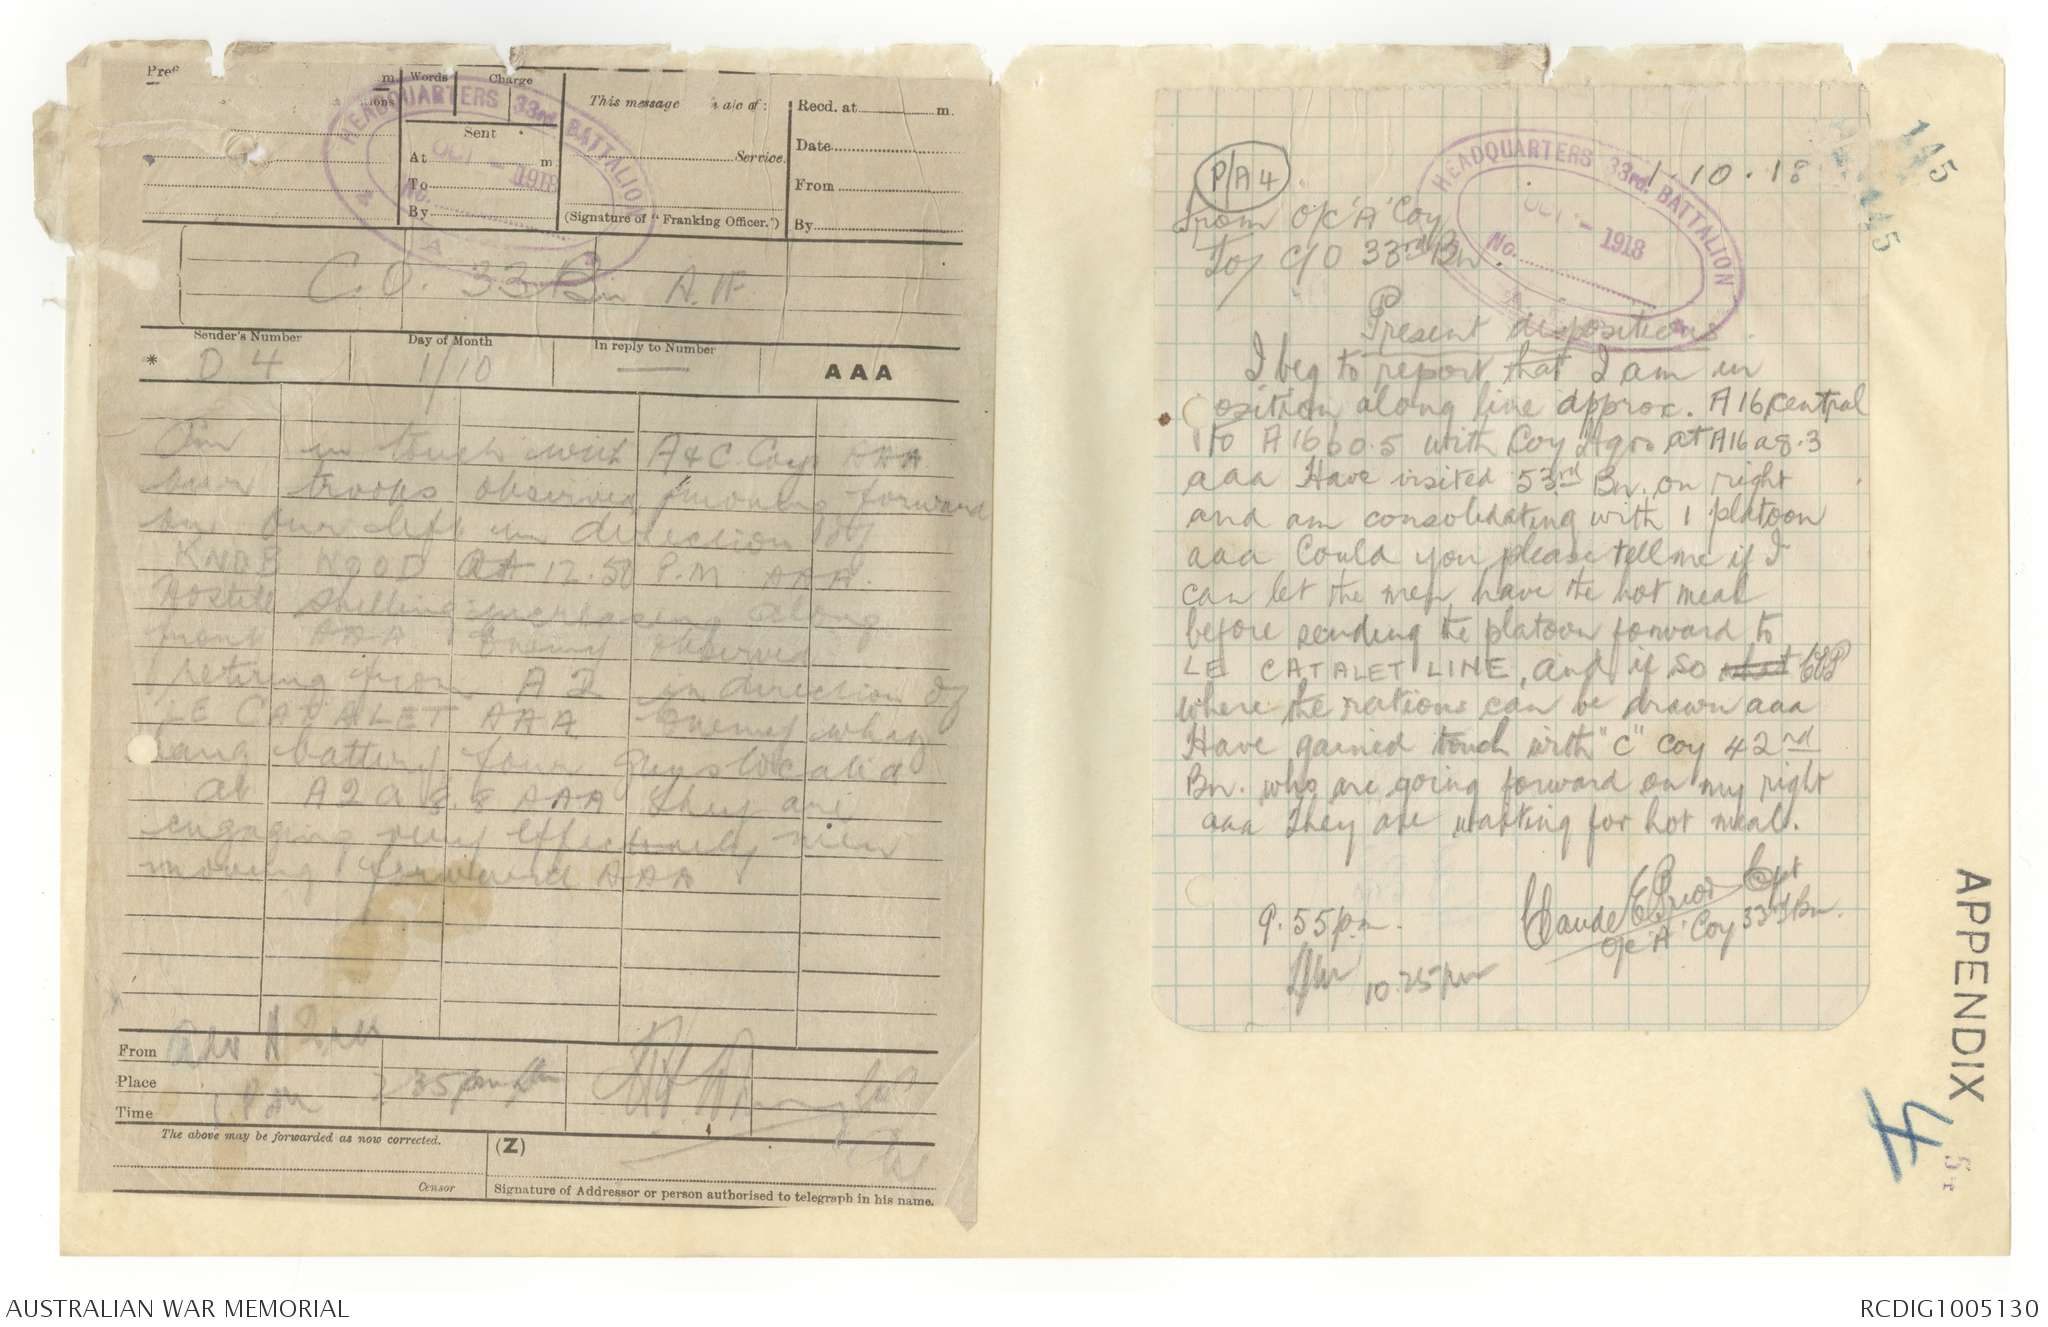 Pref
m.
Words
Charge
This message
a/c of:
Recd. at
m.
Sent
Date
At
m.
Service.
From
To
By
(Signature of "Franking Officer.")
By
HEADQUARTERS 33rd. BATTALION
OCT - 1918
No.
C.O. 33 Bn A.I.F.
Sender's Number
Day of Month
In reply to Number
AAA
* D 4
1/10
in touch with A & C Coys AAA
troops observed moving forward
on our left in direction of
KNOB WOOD At 12.50 P.M AAA.
Hostile shelling increasing along
front AAA Enemy observed
retiring from A 2 in direction of
LE CATALET AAA Enemy whizz
bang battery four guns located
at A 2 a 8.8 AAA They are
engaging very effectively men
moving forward AAA
From
Place
Time
1 Pm
2 35 pm
The above may be forwarded as now corrected.
(Z)
Censor
Signature of Addressor or person authorised to telegraph in his name.
P/A 4
1.10.18
HEADQUARTERS 33rd. BATTALION
OCT - 1918
No.
From O/C 'A' Coy
To/ C/O 33rd Bn.
Present dispositions.
I beg to report that I am in
position along line approx. A16central
to A16b0.5 with Coy Hqrs at A16a8.3
aaa Have visited 53rd Bn. on right
and am consolidating with 1 platoon
aaa Could you please tell me if I
can let the men have the hot meal
before sending the platoon forward to
LE CATALET LINE, and if so CEP
where the rations can be drawn aaa
Have gained touch with "C" Coy 42nd
Bn. who are going forward on my right
aaa They are waiting for hot meal.
Claude E Prior Capt
O/C 'A' Coy 33rd Bn.
9.55pm.
10.25pm
145
145
APPENDIX
4
AUSTRALIAN WAR MEMORIAL
RCDIG1005130